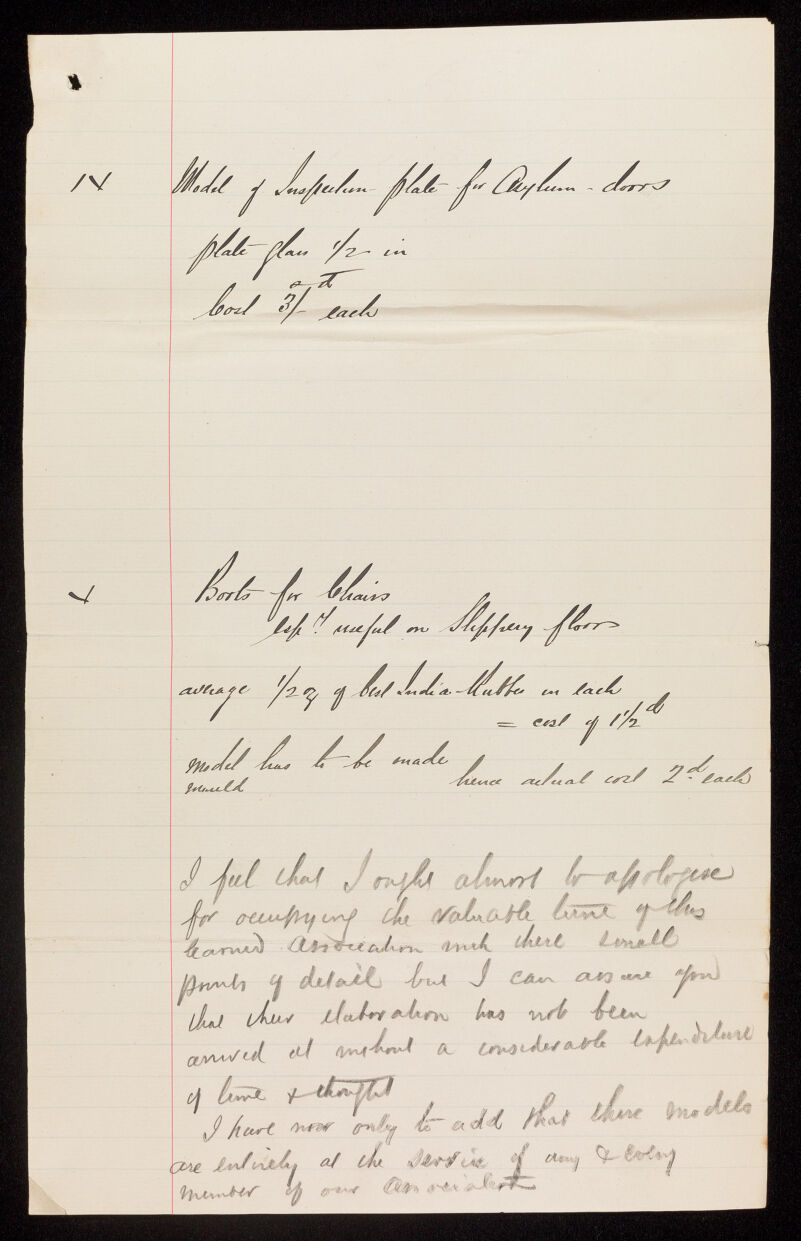 IX Model of Inspection plate for Asylum-doors
plate glass 1/2 in
s d
Cost 3/- each
X Boots for Chairs
esp.y useful on Slippery floors
average 1/2 oz of best India-Rubber in each
= cost of 1 1/2 d
model has to be made
mould
hence actual cost 2d. each
I feel that I ought almost to apologise
for occupying the valuable time of this
learned Association with these small
points of detail but I can assure you
that their elaboration has not been
arrived at without a considerable expenditure
of time & thought
I have now only to add that these models
are entirely at the service of any & every
member of our Association